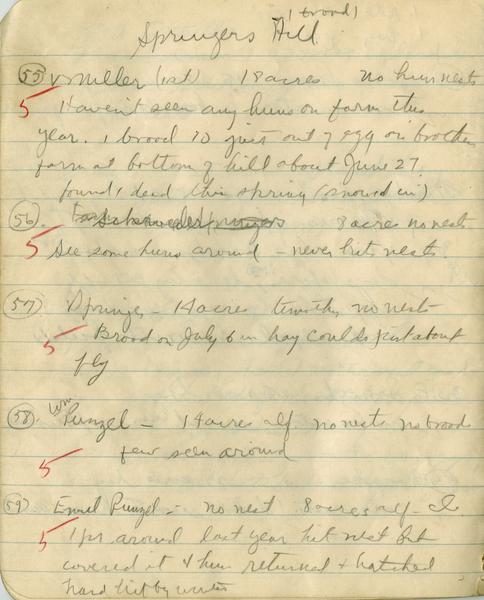 (1 brood)
Springers Hill
55 Miller (1st) 18 acres no hun nests
5 Haven't seen any huns on farm this
year. 1 brood 10 just out of egg on brother
farm at bottom of hill about June 27.
found 1 dead this spring (snowed in)
56. 8 acres no nests
5 See some huns around - never hits nests.
57 Springer - 14 acres timothy no nest
5 Brood on July 6 in hay could just about
fly
58. Wm Punzel - 14 acres alf no nests no broods
5 few seen around
59 Emil Punzel - no nest 8 acres alf -
5 1 pr around last year hit nest but
covered it & hun returned & hatched
hard hit by winter